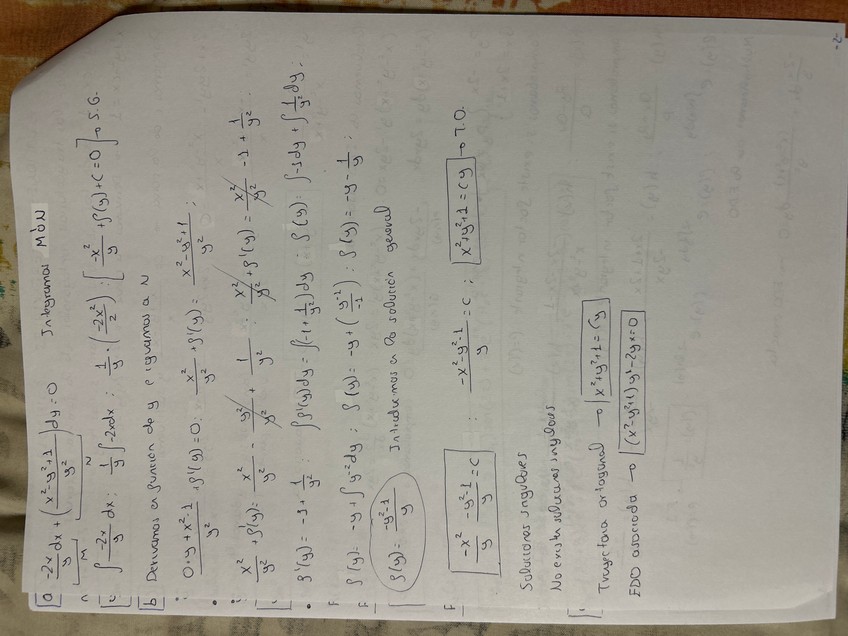 a) -2x/y dx + (x²-y²+1 / y²) dy = 0 Integramos M ó N
M N
∫ -2x/y dx : 1/y ∫ -2x dx : 1/y · (-2x²/2) : [-x²/y + ρ(y) + C = 0] → S.G.
b) Derivamos en función de y e igualamos a N
0·y + x²·1 / y² + ρ'(y) = 0 : x²/y² + ρ'(y) = x²-y²+1 / y² ;
x²/y² + ρ'(y) = x²/y² - y²/y² + 1/y² : x²/y² + ρ'(y) = x²/y² - 1 + 1/y²
ρ'(y) = -1 + 1/y² : ∫ρ'(y)dy = ∫(-1 + 1/y²)dy : ρ(y) : ∫-1dy + ∫1/y² dy ;
ρ(y) : -y + ∫y⁻²dy ; ρ(y) = -y + (y⁻¹/-1) : ρ(y) = -y - 1/y ;
ρ(y) = -y²-1 / y Introducimos en la solución general
-x²/y -y²-1/y = C : -x²-y²-1 / y = C ; x²+y²+1 = Cy → T.O.
Soluciones singulares
No existen soluciones singulares
Trayectoria ortogonal → x²+y²+1 = Cy
EDO asociada → (x²-y²+1) y' - 2yx = 0
-2-